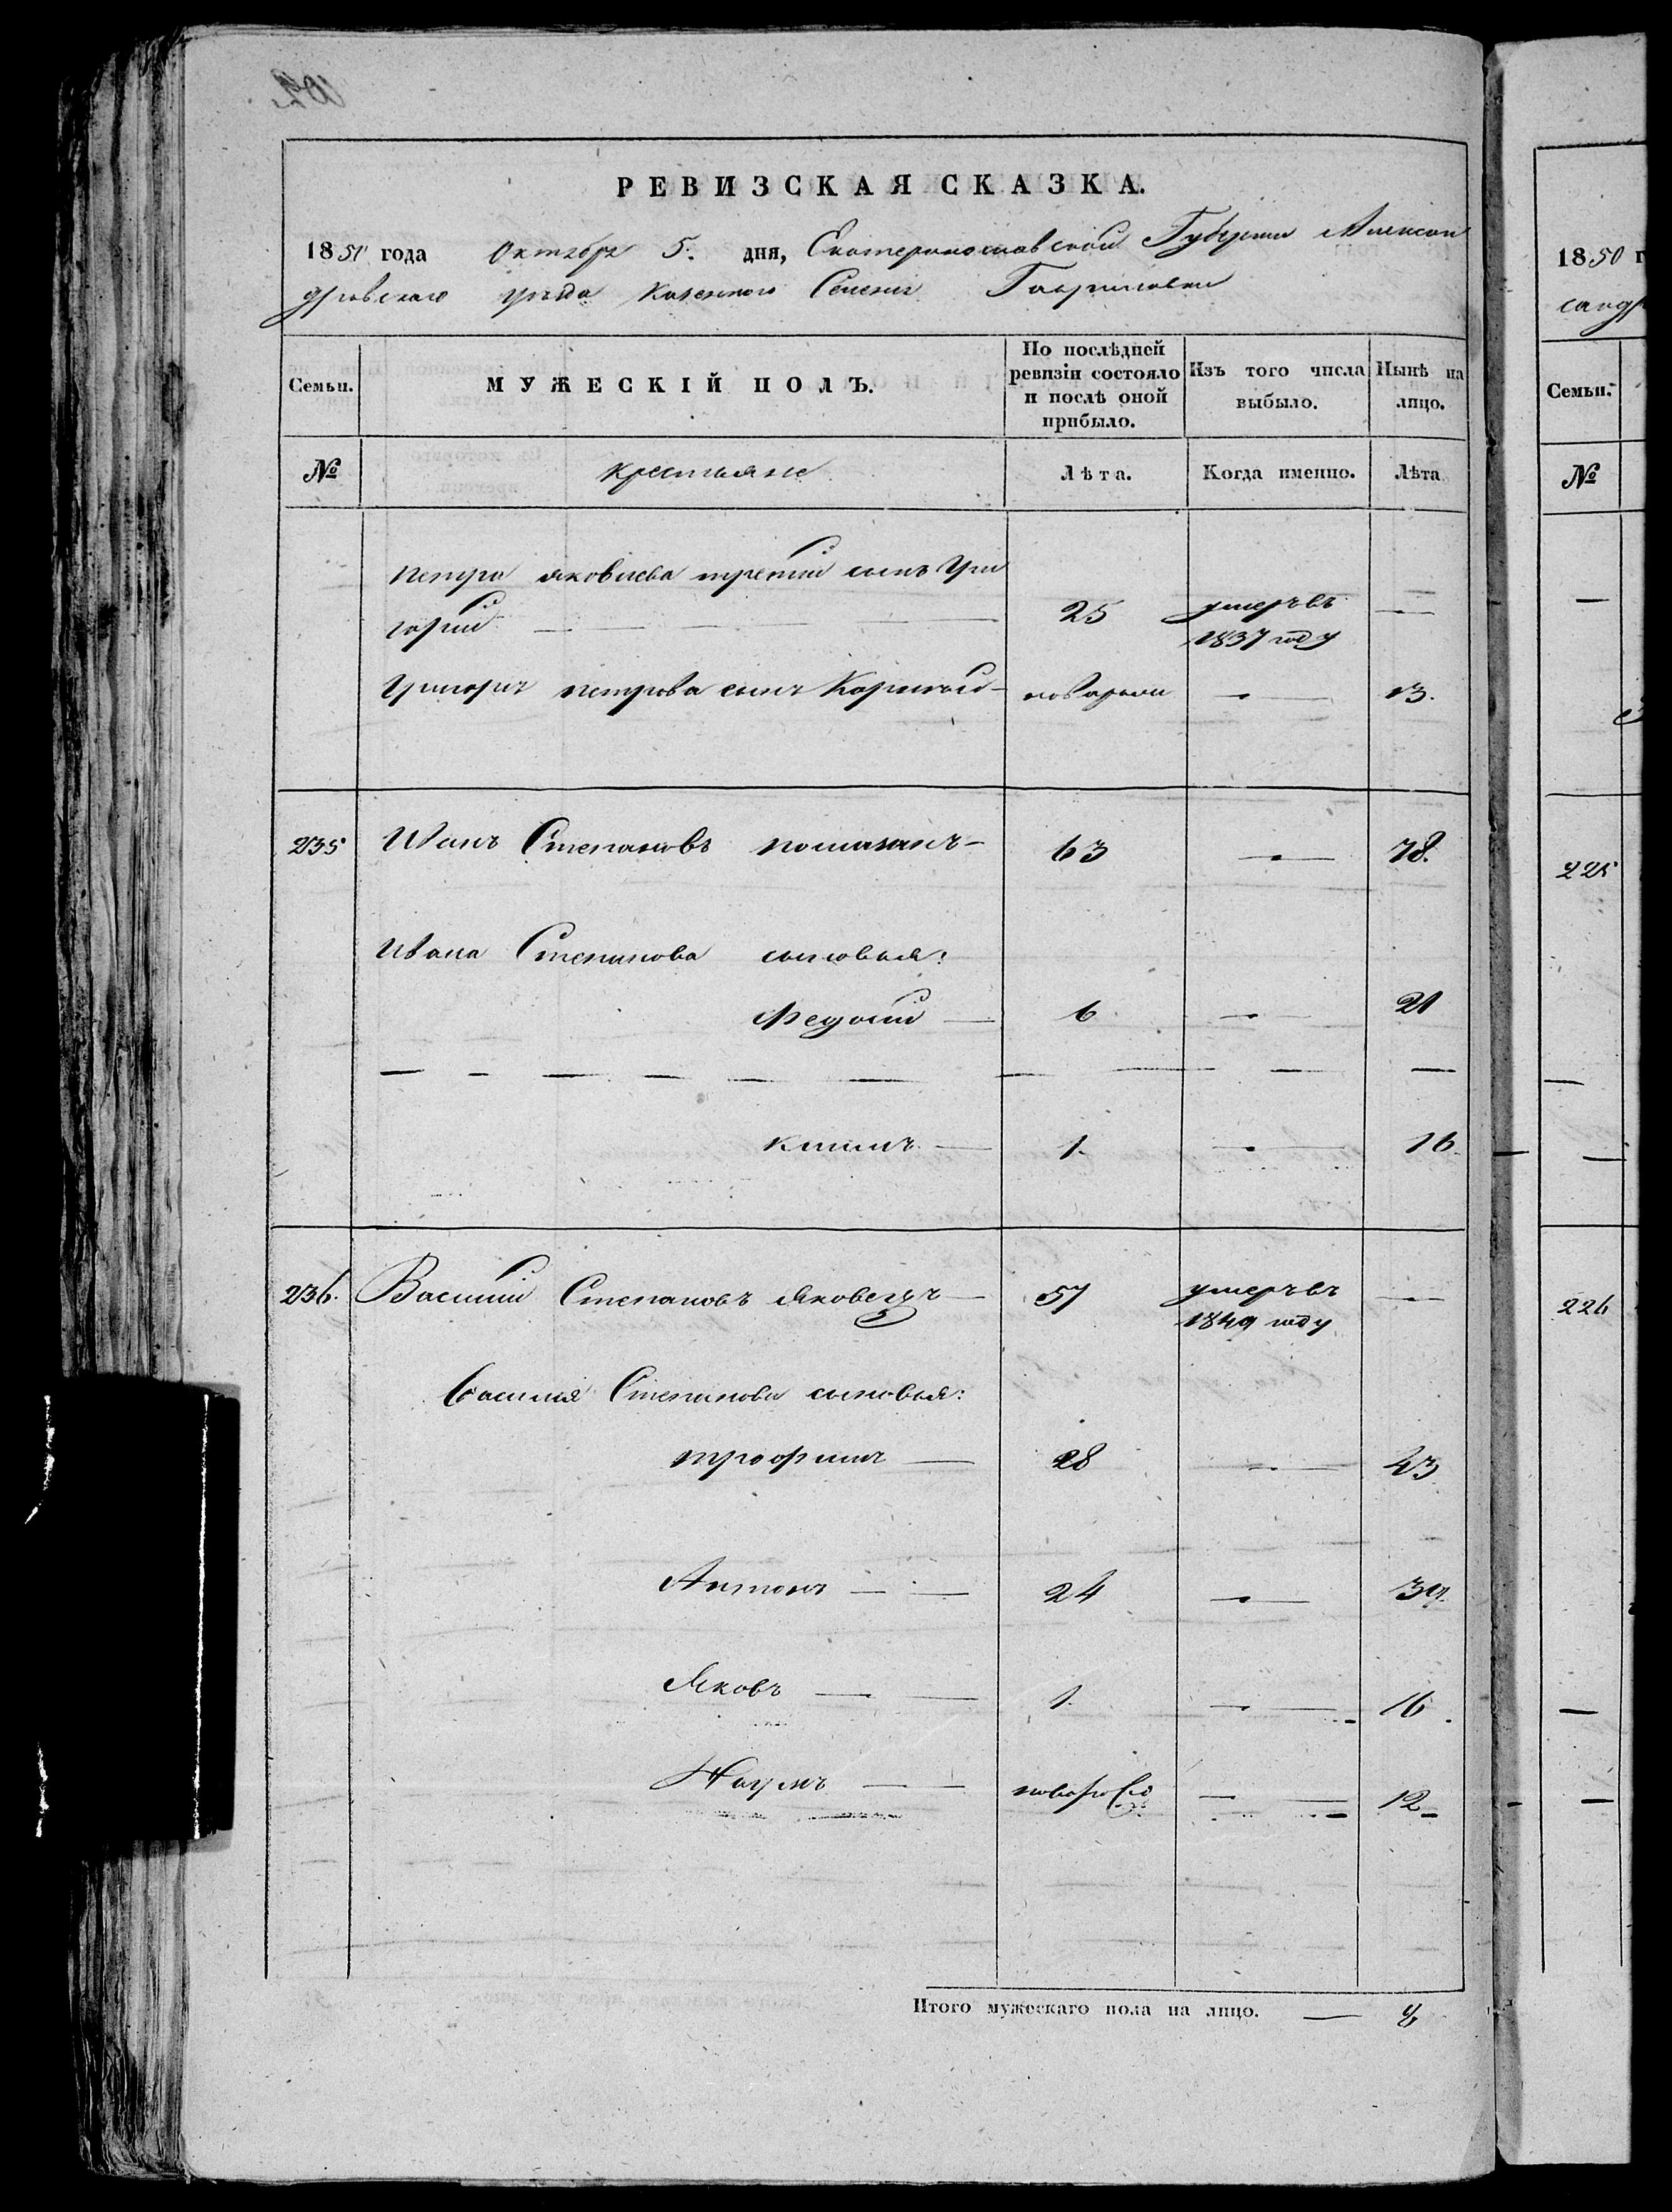 РЕВИЗСКАЯ СКАЗКА.
1850 года Октября 5. дня, Екатеринославской Губернии Алексан
дровскаго уѣзда Казеннаго Селенія Гавриловки
Семьи. МУЖЕСКІЙ ПОЛЪ. По послѣдней ревизіи состояло и послѣ оной прибыло. Изъ того числа выбыло. Нынѣ на лицо.
№ крестьяне Лѣта. Когда именно. Лѣта
Петра Яковлева третій сынъ Гри
горій — — — — 25 умеръ въ 1837 году —
Григорія Петрова сынъ — — 13.
235 Иванъ Степановъ — 63 — 78.
Ивана Степанова сыновья:
Федосій — 6 — 21
Климъ — 1. — 16.
236. Василій Степановъ Яковецъ — 57 умеръ въ 1849 году —
Василія Степанова сыновья:
Трофимъ — 28 — 43
Антонъ — — 24 — 39.
Яковъ — — 1. — 16.
Наумъ — — новорож — 12
Итого мужескаго пола на лицо. — 8
1850 г
сандр
Семьи.
№
225
226